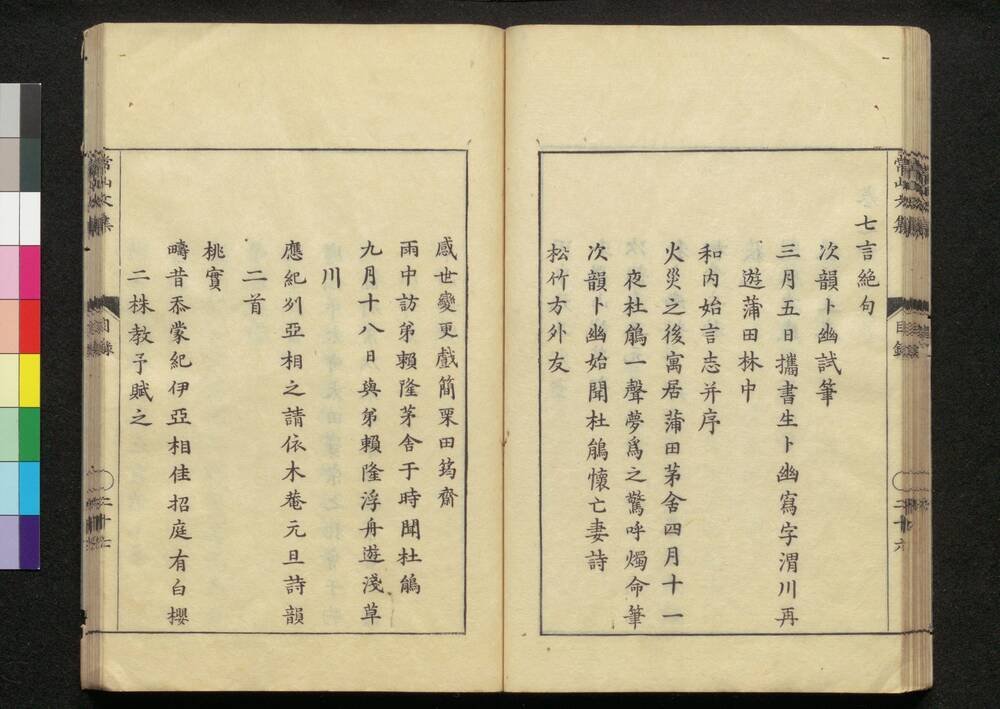 七言絶句
次韻卜幽試筆
三月五日攜書生卜幽寫字渭川再
遊蒲田林中
和内始言志并序
火災之後寓居蒲田茅舍四月十一
夜杜鵑一聲夢爲之驚呼燭命筆
次韻卜幽始聞杜鵑懷亡妻詩
松竹方外友
感世變更戲簡栗田筠齋
雨中訪弟賴隆茅舍于時聞杜鵑
九月十八日與弟賴隆浮舟遊淺草
川
應紀刕亞相之請依木菴元旦詩韻
二首
桃實
疇昔忝蒙紀伊亞相佳招庭有白櫻
二株教予賦之
常山文集
目錄
二十六